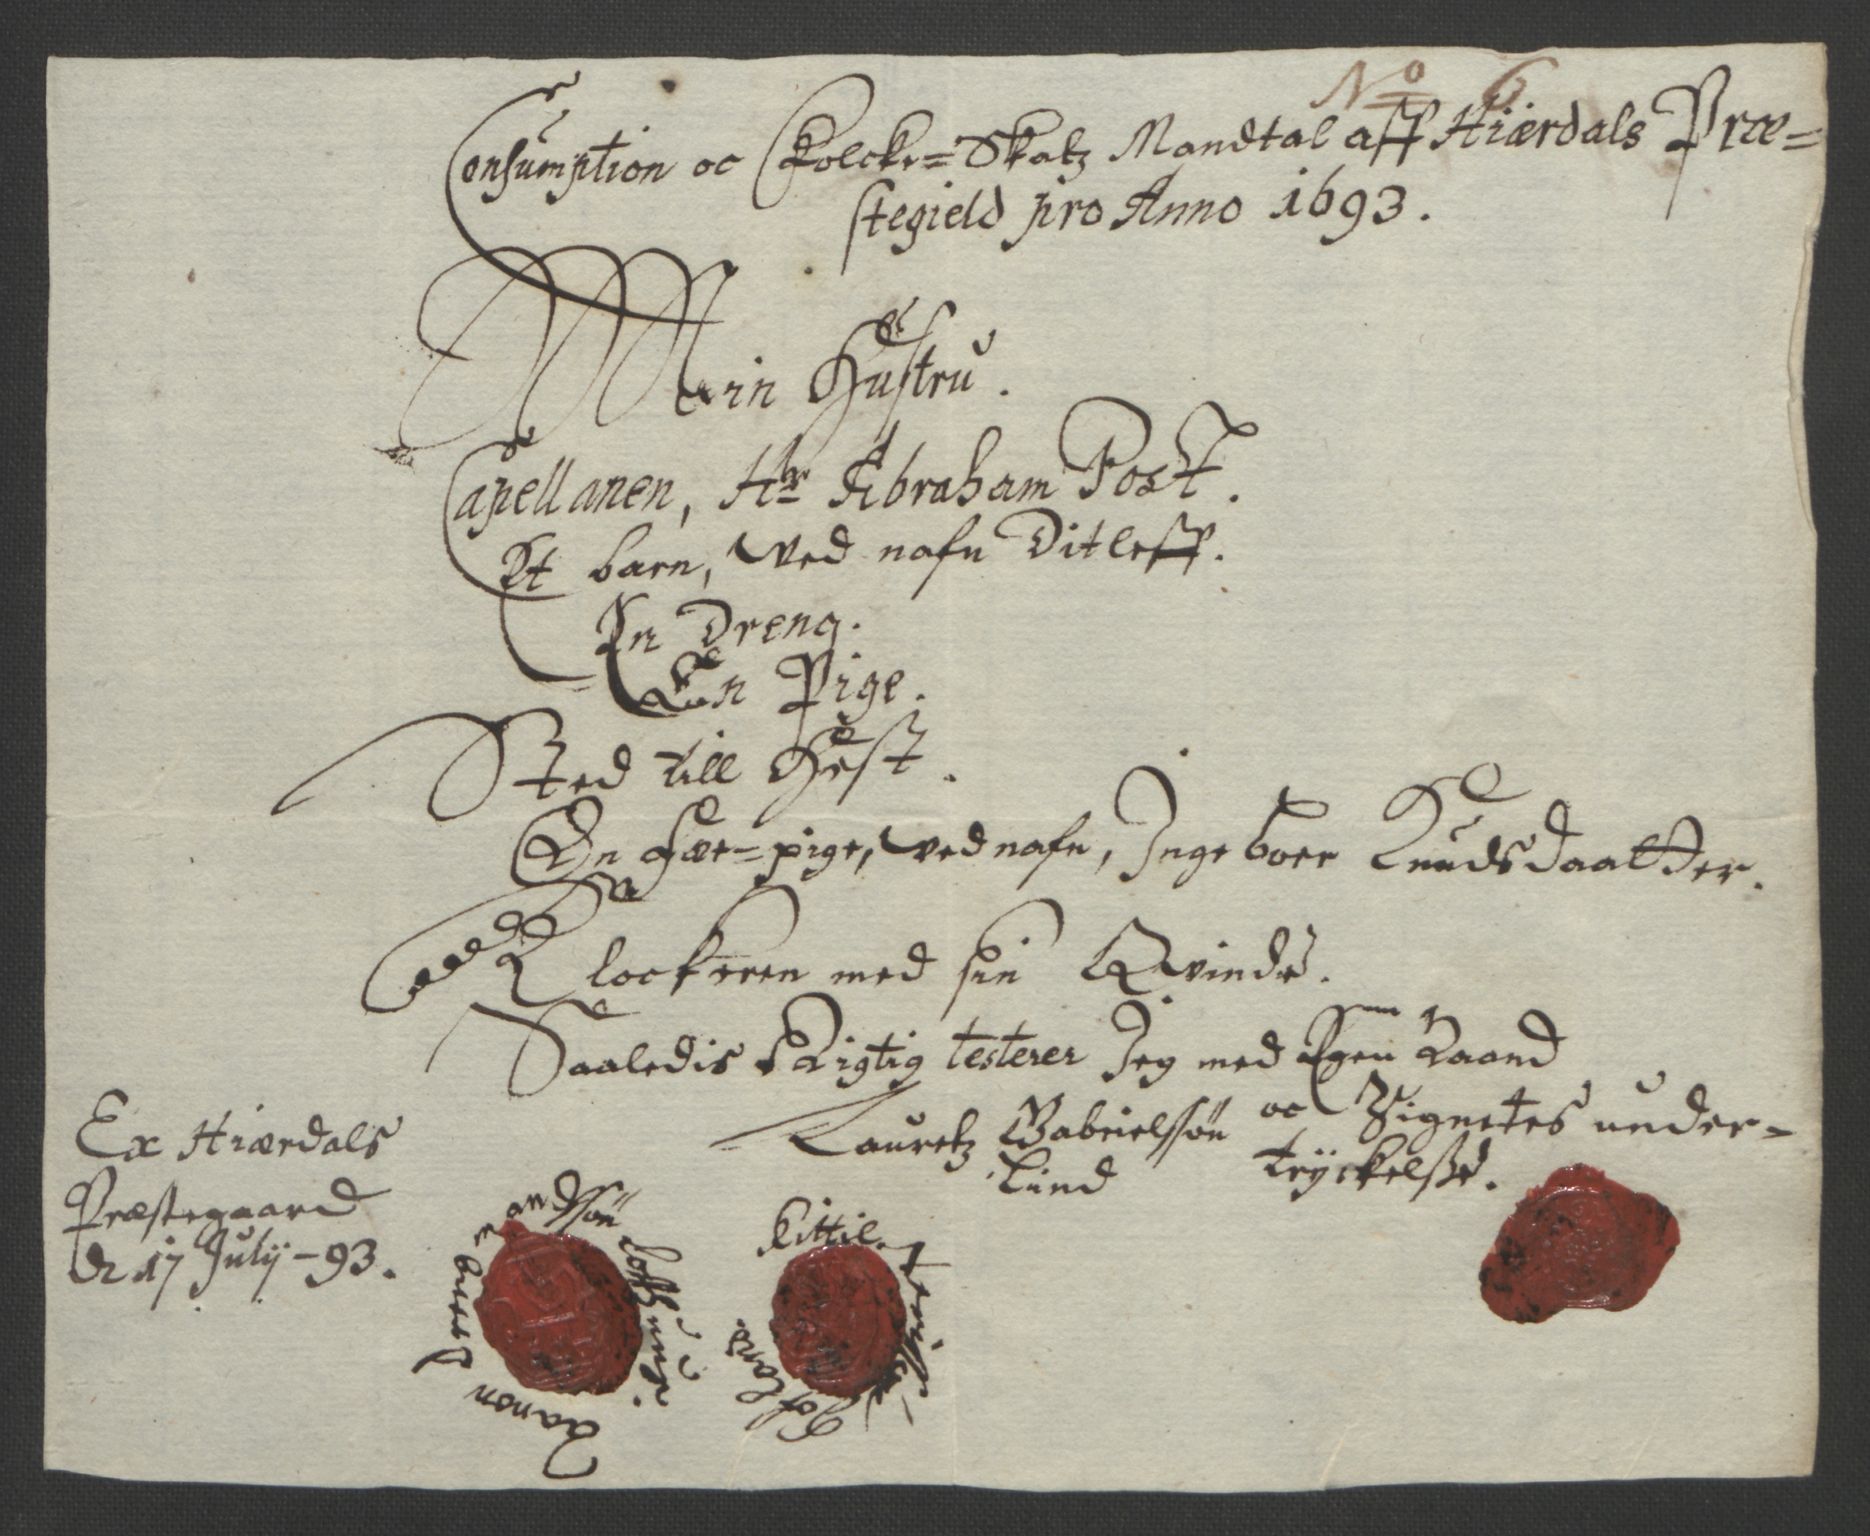 No 6
Consumption oc Folcke=Skatz Mandtal aff Hiærdals Præ=
stegield pro Anno 1693.
Min Hustru.
Capellanen, Hr Abraham Post.
Et barn, ved nafn Ditleff.
En Dreng.
Een Pige.
Sted till Hest.
En fæe=pige, ved nafn, Ingeboer Knudsdaatter.
Klockeren med sin Qvinde.
Saaledis Rigtig testerer Jeg med Egen Haand
oc Zignetes under=
tryckelsse.
Lauretz Gabrielsøn
Lind
Ex Hiærdals
Præstegaard
d 17 Julij -93.
Kittil